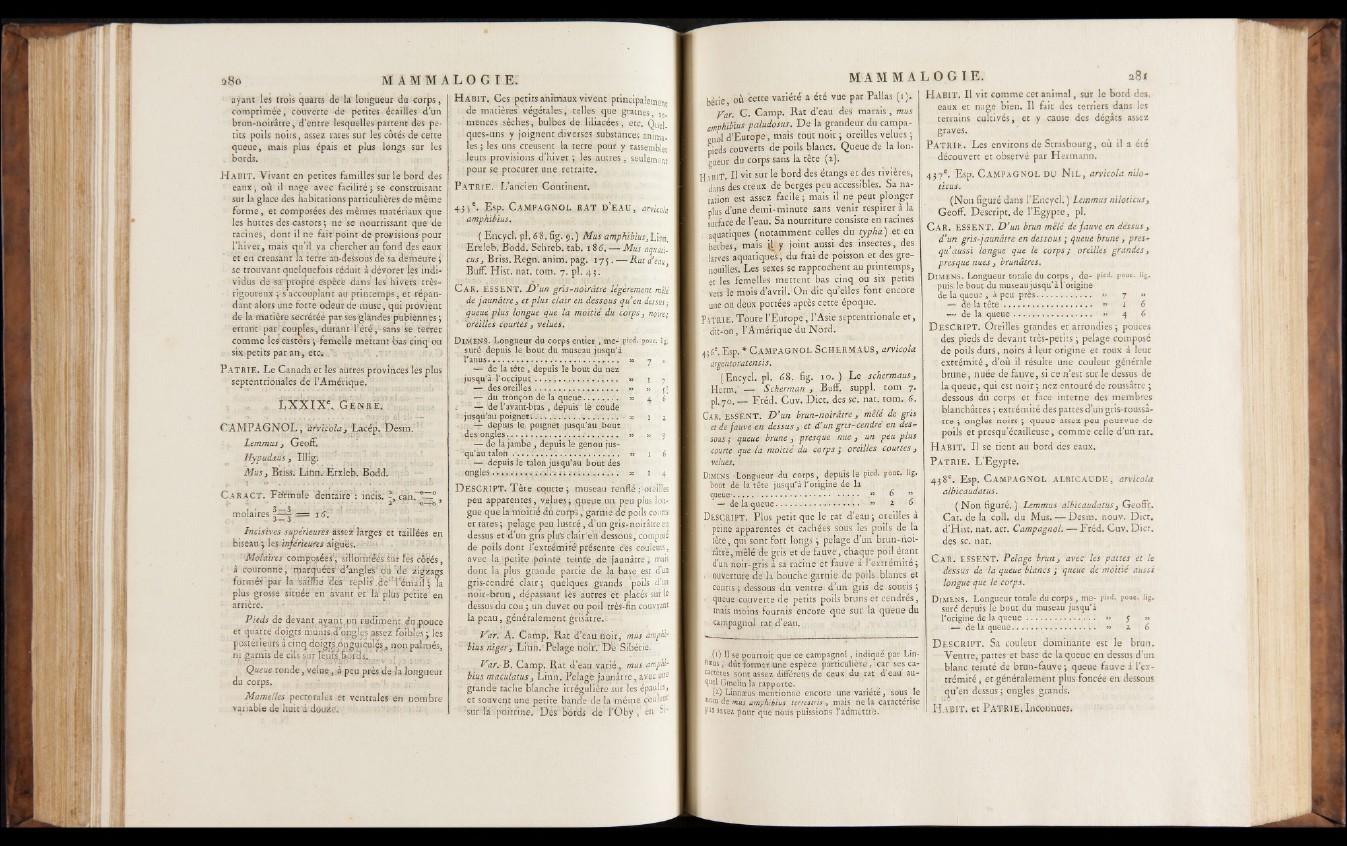 280
MAMMALOGIE.
ayant les trois quarts de la longueur du corps,
comprimée, couverte de petites écailles d'un
brun-noirâtre, d'entre lesquelles partent des pe-
tits poils noirs, assez rares sur les côtés de cette
queue, mais plus épais et plus longs sur les
bords.
HABIT. Vivant en petites familles sur le bord des
eaux, où il nage avec facilité; se construisant
sur la glace des habitations particulières de même
forme, et composées des mêmes matériaux que
les huttes des castors; ne se nourrissant que de
racines, dont il ne fait point de provisions pour
l'hiver, mais qu'il va chercher au fond des eaux
et en creusant la terre au-dessous de sa demeure;
se trouvant quelquefois réduit à dévorer les indi-
vidus de sa propre espèce dans les hivers très-
rigoureux; s'accouplant au printemps, et répan-
dant alors une forte odeur de musc, qui provient
de la matière secrétée par ses glandes pubiennes;
errant par couples, durant l'été, sans se terrer
comme les castors; femelle mettant bas cinq ou
six petits par an, etc.
PATRIE. Le Canada et les autres provinces les plus
septentrionales de l'Amérique.
LXXIXe. GENRE.
CAMPAGNOL, arvicola, Lacép. Desm.
Lemmus, Geoff.
Hypudæus, Illig.
Mus, Briss. Linn. Erxleb. Bodd.
CARACT. Formule dentaire : incis. 2/2, can. 0—0/0—0,
molaires 3—3/3—3 = 16.
Incisives supérieures assez larges et taillées en
biseau; les inférieures aiguës.
Molaires composées, sillonnées sur les côtés,
à couronne, marquées d'angles ou de zigzags
formés par la saillie des replis de l'émail; la
plus grosse située en avant et la plus petite en
arrière.
Pieds de devant ayant un rudiment de pouce
et quatre doigts munis d'ongles assez foibles; les
postérieurs à cinq doigts onguiculés, non palmés,
ni garnis de cils sur leurs bords.
Queue ronde, velue, à peu près de la longueur
du corps.
Mamelles pectorales et ventrales en nombre
variable de huit à douze.
HABIT. Ces petits animaux vivent principalement
de matières végétales, telles que graines, se-
mences sèches, bulbes de liliacées, etc. Quel-
ques-uns y joignent diverses substances anima-
les; les uns creusent la terre pour y rassembler
leurs provisions d'hiver; les autres, seulement
pour se procurer une retraite.
PATRIE. L'ancien Continent.
435e. Esp. CAMPAGNOL RAT D'EAU, arvicola
amphibius.
(Encycl. pl. 68. fig. 9.) Mus amphibius, Linn.
Erxleb. Bodd. Schreb. tab. 186. — Mus aquati-
cus, Briss. Regn. anim. pag. 175. — Rat d'eau,
Buff. Hist. nat. tom. 7. pl. 43.
CAR. ESSENT. D'un gris-noirâtre légèrement mêlé
de jaunâtre, et plus clair en dessous qu'en dessus;
queue plus longue que la moitié du corps, noire;
oreilles courtes, velues.
DIMENS. Longueur du corps entier, me- pied. pouc. lig.
suré depuis le bout du museau jusqu'à
l'anus........ » 7 »
— de la tête, depuis le bout du nez
jusqu'à l'occiput........ » 1 7
— des oreilles........ » » 5½
— du tronçon de la queue........ » 4 6
— de l'avant-bras, depuis le coude
jusqu'au poignet........ » 1 2
— depuis le poignet jusqu'au bout
des ongles........ » » 9
— de la jambe, depuis le genou jus-
qu'au talon........ » 1 6
— depuis le talon jusqu'au bout des
ongles........ » 1 4
DESCRIPT. Tête courte; museau renflé; oreilles
peu apparentes, velues; queue un peu plus lon-
gue que la moitié du corps, garnie de poils courts
et rares; pelage peu lustré, d'un gris-noirâtre en
dessus et d'un gris plus clair en dessous, composé
de poils dont l'extrémité présente ces couleurs,
avec la petite pointe teinte de jaunâtre, mais
dont la plus grande partie de la base est d'un
gris-cendré clair; quelques grands poils d'un
noir-brun, dépassant les autres et placés sur le
dessus du cou; un duvet ou poil très-fin couvrant
la peau, généralement grisâtre.
Var. A. Camp. Rat d'eau noir, mus amphi-
bius niger, Linn. Pelage noir. De Sibérie.
Var. B. Camp. Rat d'eau varié, mus amphi-
bius maculatus, Linn. Pelage jaunâtre, avec une
grande tache blanche irrégulière sur les épaules,
et souvent une petite bande de la même couleur
sur la poitrine. Des bords de l'Oby, en Si-
MAMMALOGIE.
281
bérie, où cette variété a été vue par Pallas (1).
Var. C. Camp. Rat d'eau des marais, mus
amphibius paludosus. De la grandeur du campa-
gnol d'Europe, mais tout noir; oreilles velues;
pieds couverts de poils blancs. Queue de la lon-
gueur du corps sans la tête (2).
HABIT. Il vit sur le bord des étangs et des rivières,
dans des creux de berges peu accessibles. Sa na-
tation est assez facile; mais il ne peut plonger
plus d'une demi-minute sans venir respirer à la
surface de l'eau. Sa nourriture consiste en racines
aquatiques (notamment celles du typha) et en
herbes, mais il y joint aussi des insectes, des
larves aquatiques, du frai de poisson et des gre-
nouilles. Les sexes se rapprochent au printemps,
et les femelles mettent bas cinq ou six petits
vers le mois d'avril. On dit qu'elles font encore
une ou deux portées après cette époque.
PATRIE. Toute l'Europe, l'Asie septentrionale et,
dit-on, l'Amérique du Nord.
436e. Esp. * CAMPAGNOL SCHERMAUS, arvicola
argentoratensis.
(Encycl. pl. 68. fig. 10.) Le schermaus,
Herm. — Scherman, Buff. suppl. tom 7.
pl. 70. — Fréd. Cuv. Dict. des sc. nat. tom. 6.
CAR. ESSENT. D'un brun-noirâtre, mêlé de gris
et de fauve en dessus, et d'un gris-cendré en des-
sous; queue brune, presque nue, un peu plus
courte que la moitié du corps; oreilles courtes,
velues.
DIMENS. Longueur du corps, depuis le pied. pouc. lig.
bout de la tête jusqu'à l'origine de la
queue........ » 6 »
— de la queue........ » 2 6
DESCRIPT. Plus petit que le rat d'eau; oreilles à
peine apparentes et cachées sous les poils de la
tête, qui sont fort longs; pelage d'un brun-noi-
râtre, mêlé de gris et de fauve, chaque poil étant
d'un noir-gris à sa racine et fauve à l'extrémité;
ouverture de la bouche garnie de poils blancs et
courts; dessous du ventre d'un gris de souris;
queue couverte de petits poils bruns et cendrés,
mais moins fournis encore que sur la queue du
campagnol rat d'eau.
(1) Il se pourroit que ce campagnol, indiqué par Lin-
næus, dût former une espèce particulière, car ses ca-
ractères sont assez différens de ceux du rat d'eau au-
quel Gmelin la rapporte.
(2) Linnæus mentionne encore une variété, sous le
nom de mus amphibius terrestris, mais ne la caractérise
pas assez pour que nous puissions l'admettre.
HABIT. Il vit comme cet animal, sur le bord des
eaux et nage bien. Il fait des terriers dans les
terrains cultivés, et y cause des dégâts assez
graves.
PATRIE. Les environs de Strasbourg, où il a été
découvert et observé par Hermann.
437e. Esp. CAMPAGNOL DU NIL, arvicola nilo-
ticus.
(Non figuré dans l'Encycl.) Lemmus niloticus,
Geoff. Descript. de l'Egypte, pl.
CAR. ESSENT. D'un brun mêlé de fauve en dessus,
d'un gris-jaunâtre en dessous; queue brune, pres-
qu'aussi longue que le corps; oreilles grandes,
presque nues, brunâtres.
DIMENS. Longueur totale du corps, de- pied. pouc. lig.
puis le bout du museau jusqu'à l'origine
de la queue, à peu près........ » 7 »
— de la tête........ » 1 6
— de la queue........ » 4 6
DESCRIPT. Oreilles grandes et arrondies; pouces
des pieds de devant très-petits; pelage composé
de poils durs, noirs à leur origine et roux à leur
extrémité, d'où il résulte une couleur générale
brune, nuée de fauve, si ce n'est sur le dessus de
la queue, qui est noir; nez entouré de roussâtre;
dessous du corps et face interne des membres
blanchâtres; extrémité des pattes d'un gris-roussâ-
tre; ongles noirs; queue assez peu pourvue de
poils et presqu'écailleuse, comme celle d'un rat.
HABIT. Il se tient au bord des eaux.
PATRIE. L'Egypte.
438e. CAMPAGNOL ALBICAUDE, arvicola
albicaudatus.
(Non figuré.) Lemmus albicaudatus, Geoff.
Cat. de la coll. du Mus. — Desm. nouv. Dict.
d'Hist. nat. art. Campagnol. — Fréd. Cuv. Dict.
des sc. nat.
CAR. ESSENT. Pelage brun, avec les pattes et le
dessus de la queue blancs; queue de moitié aussi
longue que le corps.
DIMENS. Longueur totale du corps, me- pied. pouc. lig.
suré depuis le bout du museau jusqu'à
l'origine de la queue........ » 5 »
— de la queue........ » 2 6
DESCRIPT. Sa couleur dominante est le brun.
Ventre, pattes et base de la queue en dessus d'un
blanc teinté de brun-fauve; queue fauve à l'ex-
trémité, et généralement plus foncée en dessous
qu'en dessus; ongles grands.
HABIT. et PATRIE. Inconnues.